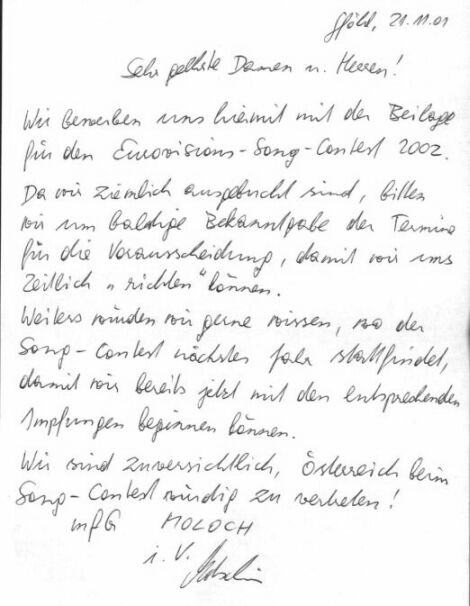 Gföhl, 21.11.01
Sehr geehrte Damen u. Herren!
Wir bewerben uns hiermit mit der Beilage
für den Eurovisions-Song-Contest 2002.
Da wir ziemlich ausgebucht sind, bitten
wir um baldige Bekanntgabe der Termine
für die Vorausscheidung, damit wir uns
zeitlich "richten" können.
Weiters würden wir gerne wissen, wo der
Song-Contest nächstes Jahr stattfindet,
damit wir bereits jetzt mit den entsprechenden
Impfungen beginnen können.
Wir sind zuversichtlich, Österreich beim
Song-Contest würdig zu vertreten!
mfG MOLOCH
i. V.